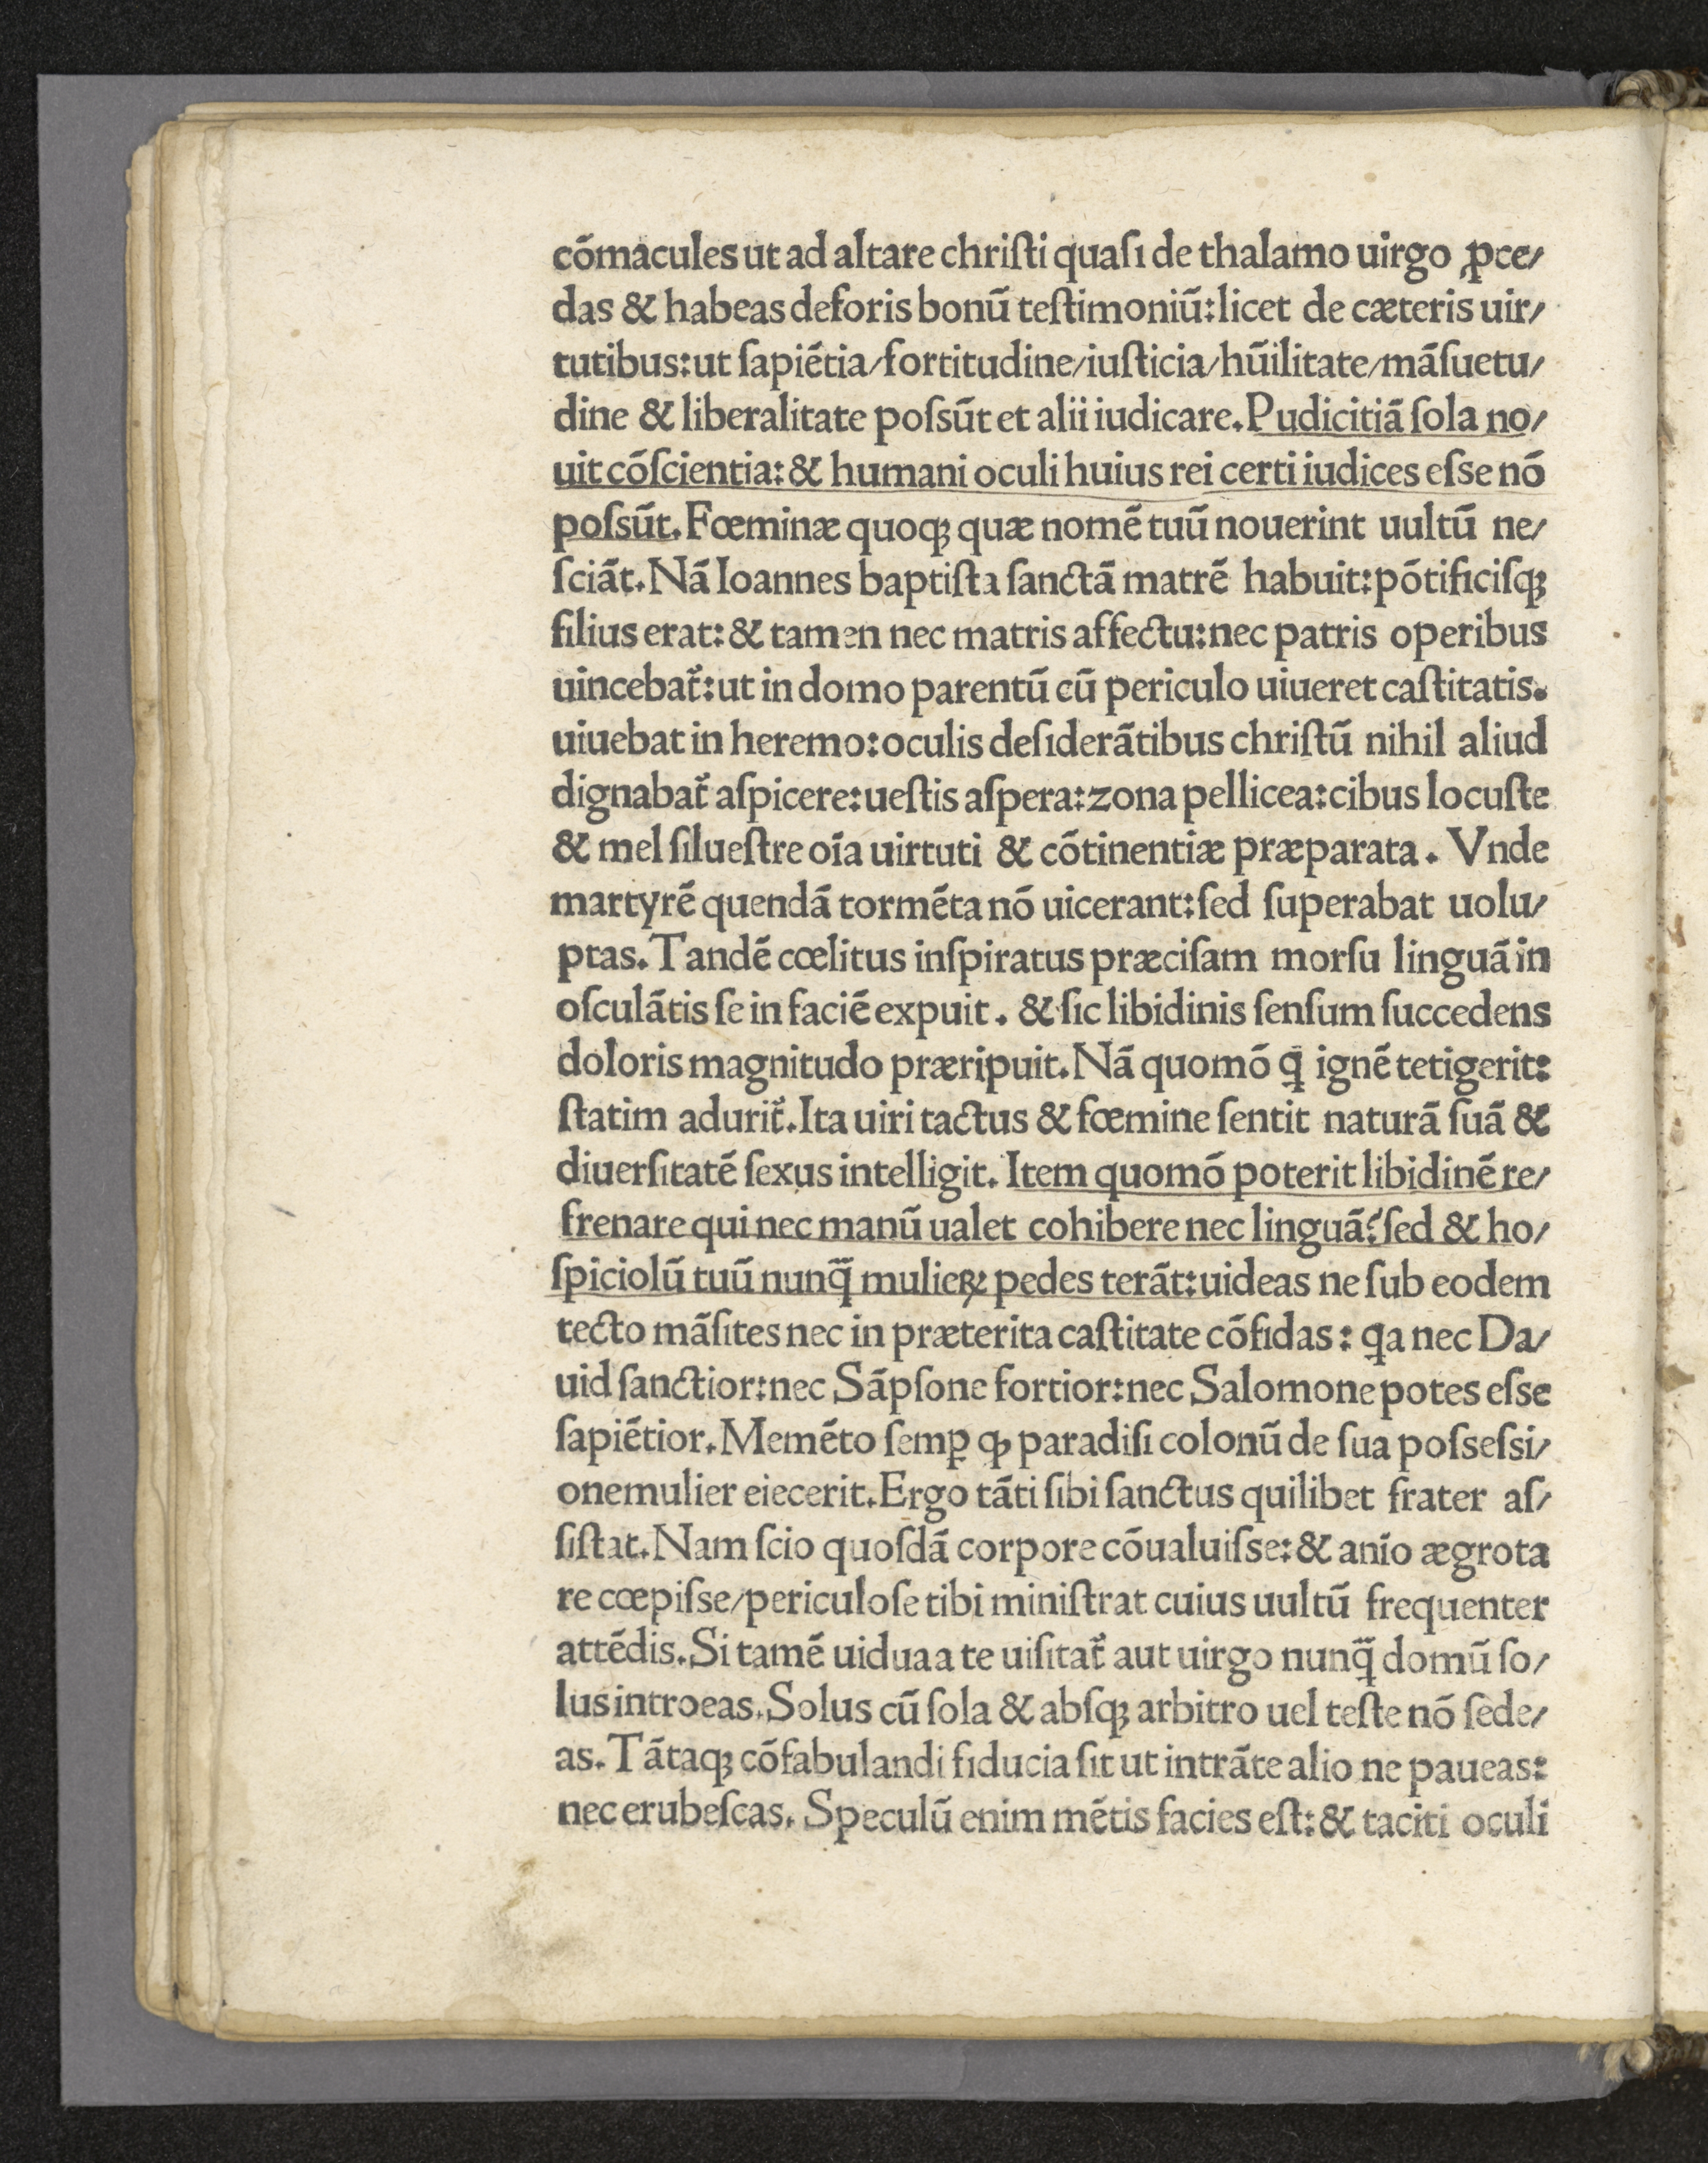 cōmacules ut ad altare chriſti quaſi de thalamo uirgo ꝓce/
das & habeas deforis bonū teſtimoniū: licet de cæteris uir/
tutibus: ut ſapiētia/fortitudine/iuſticia/hūilitate/māſuetu/
dine & liberalitate poſsūt et alii iudicare. Pudicitiā ſola no/
uit cōſcientia: & humani oculi huius rei certi iudices eſse nō
poſsūt. Fœminæ quoqꝫ quæ nomē tuū nouerint uultū ne/
ſciāt. Nā Ioannes baptiſta ſanctā matrē habuit: pōtificiſqꝫ
filius erat: & tamen nec matris affectu: nec patris operibus
uincebat᷑: ut in domo parentū cū periculo uiueret caſtitatis.
uiuebat in heremo: oculis deſiderātibus chriſtū nihil aliud
dignabat᷑ aſpicere: ueſtis aſpera: zona pellicea: cibus locuſte
& mel ſilueſtre oīa uirtuti & cōtinentiæ præparata. Vnde
martyrē quendā tormēta nō uicerant: ſed ſuperabat uolu/
ptas. Tandē cœlitus inſpiratus præciſam morſu linguā in
oſculātis ſe in faciē expuit. & ſic libidinis ſenſum ſuccedens
doloris magnitudo præripuit. Nā quomō ꝗ ignē tetigerit:
ſtatim adurit᷑. Ita uiri tactus & fœmine ſentit naturā ſuā &
diuerſitatē ſexus intelligit. Item quomō poterit libidinē re/
frenare qui nec manū ualet cohibere nec linguā? ſed & ho/
ſpiciolū tuū nunq̄ mulieꝝ pedes terāt: uideas ne ſub eodem
tecto māſites nec in præterita caſtitate cōfidas: ꝗa nec Da/
uid ſanctior: nec Sāpſone fortior: nec Salomone potes eſse
ſapiētior. Memēto ſemꝑ ꝙ paradiſi colonū de ſua poſseſsi/
onemulier eiecerit. Ergo tāti ſibi ſanctus quilibet frater aſ/
ſiſtat. Nam ſcio quoſdā corpore cōualuiſse: & anīo ægrota
re cœpiſse/periculoſe tibi miniſtrat cuius uultū frequenter
attēdis. Si tamē uidua a te uiſitat᷑ aut uirgo nunq̄ domū ſo/
lus introeas. Solus cū ſola & abſqꝫ arbitro uel teſte nō ſede/
as. Tātaqꝫ cōfabulandi fiducia ſit ut intrāte alio ne paueas:
nec erubeſcas. Speculū enim mētis facies eſt: & taciti oculi